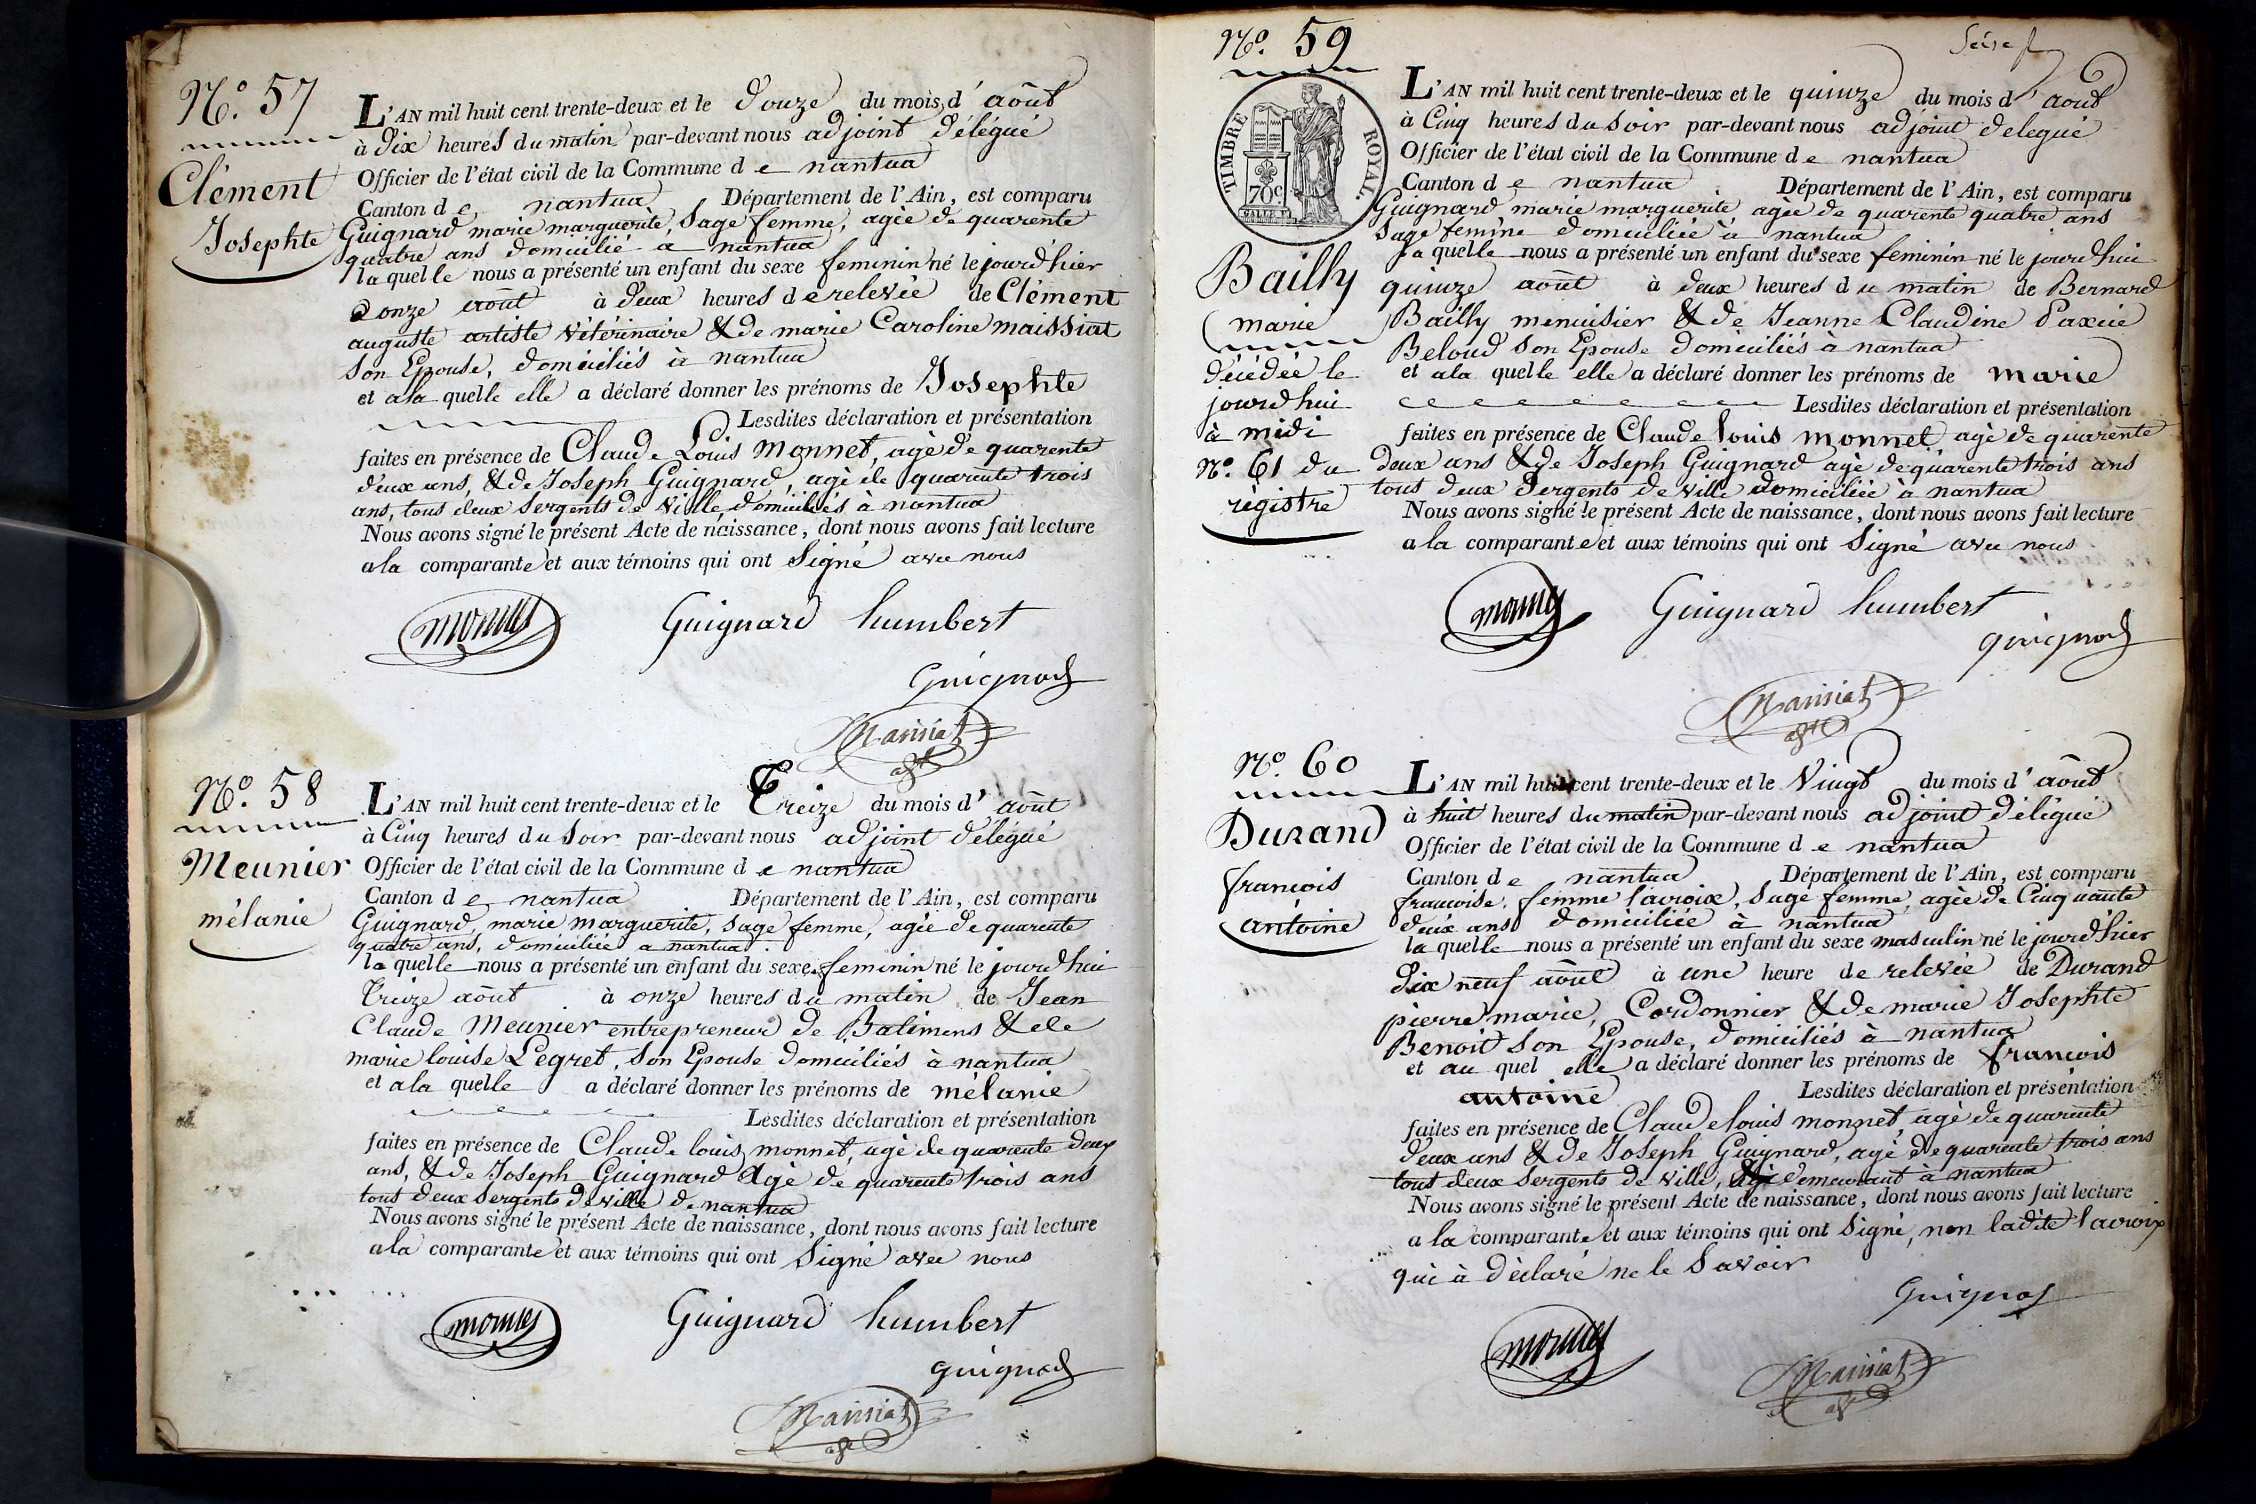 N.º 57
Clément
Josephte
L'AN mil huit cent trente-deux et le Douze du mois d'août
à dix heures du matin par-devant nous adjoint délégué
Officier de l'état civil de la Commune de nantua
Canton de nantua Département de l'Ain, est comparu
Guignard marie marguerite, Sage femme, agée de quarente
quatre ans domiciliée a nantua
laquelle nous a présenté un enfant du sexe feminin né le jourd'hier
onze août à deux heures de relevée de Clément
auguste artiste vétérinaire & de marie Caroline maissiat
Son Epouse, domiciliés à nantua
et a la quelle elle a déclaré donner les prénoms de Josephte
Lesdites déclaration et présentation
faites en présence de Claude Louis Monnet, agé de quarente
deux ans, & de Joseph Guignard, agé de quarente trois
ans, tous deux Sergents de Ville domiciliés à nantua
Nous avons signé le présent Acte de naissance, dont nous avons fait lecture
a la comparante et aux témoins qui ont Signé avec nous
monnet Guignard humbert
Guignard
Maissiat
N.º 58
Meunier
mélanie
L'AN mil huit cent trente-deux et le Treize du mois d'août
à Cinq heures du Soir par-devant nous adjoint délégué
Officier de l'état civil de la Commune de nantua
Canton de nantua Département de l'Ain, est comparu
Guignard, marie marguerite, Sage femme, agée de quarente
quatre ans, domiciliée a nantua
la quelle nous a présenté un enfant du sexe feminin né le jourd'hui
Treize août à onze heures du matin de Jean
Claude Meunier entrepreneur de Batimens & de
marie louise Legret, Son Epouse domiciliés à nantua
et a la quelle a déclaré donner les prénoms de mélanie
Lesdites déclaration et présentation
faites en présence de Claude louis monnet, agé de quarente deux
ans, & de Joseph Guignard agé de quarente trois ans
tous deux Sergents de ville de nantua
Nous avons signé le présent Acte de naissance, dont nous avons fait lecture
a la comparante et aux témoins qui ont Signé avec nous
monnet Guignard humbert
Guignard
Maissiat
N.º 59
TIMBRE ROYAL.
70c
Bailly
marie
décédée le
jourd'hui
à midi
N.º 61 du
régistre
L'AN mil huit cent trente-deux et le quinze du mois d'août
à Cinq heures du Soir par-devant nous adjoint delegué
Officier de l'état civil de la Commune de nantua
Canton de nantua Département de l'Ain, est comparu
Guignard marie marguerite agée de quarente quatre ans
Sage femme domiciliée à nantua
la quelle nous a présenté un enfant du sexe feminin né le jourd'hui
quinze août à deux heures du matin de Bernard
Bailly menuisier & de Jeanne Claudine
Beloud Son Epouse domiciliés à nantua
et a la quelle elle a déclaré donner les prénoms de marie
Lesdites déclaration et présentation
faites en présence de Claude louis monnet agé de quarente
deux ans & de Joseph Guignard agé de quarente trois ans
tous deux Sergents de ville domiciliée à nantua
Nous avons signé le présent Acte de naissance, dont nous avons fait lecture
a la comparante et aux témoins qui ont Signé avec nous
monnet Guignard humbert
Guignard
Maissiat
N.º 60
Durand
françois
antoine
L'AN mil huit cent trente-deux et le Vingt du mois d'août
à huit heures du matin par-devant nous adjoint délégué
Officier de l'état civil de la Commune de nantua
Canton de nantua Département de l'Ain, est comparu
francoise, femme lacroix, Sage femme, agée de Cinquante
deux ans domiciliée à nantua
la quelle nous a présenté un enfant du sexe masculin né le jourd'hier
dix neuf août à une heure de relevée de Durand
pierre marie, Cordonnier & de marie Josephte
Benoit Son Epouse, domiciliés à nantua
et au quel elle a déclaré donner les prénoms de françois
antoine Lesdites déclaration et présentation
faites en présence de Claude louis monnet, agé de quarente
deux ans & de Joseph Guignard, agé de quarente trois ans
tous deux Sergents de ville, demeurant à nantua
Nous avons signé le présent Acte de naissance, dont nous avons fait lecture
a la comparante et aux témoins qui ont Signé, non ladite lacroix
qui à déclaré ne le Savoir
Guignard
monnet
Maissiat